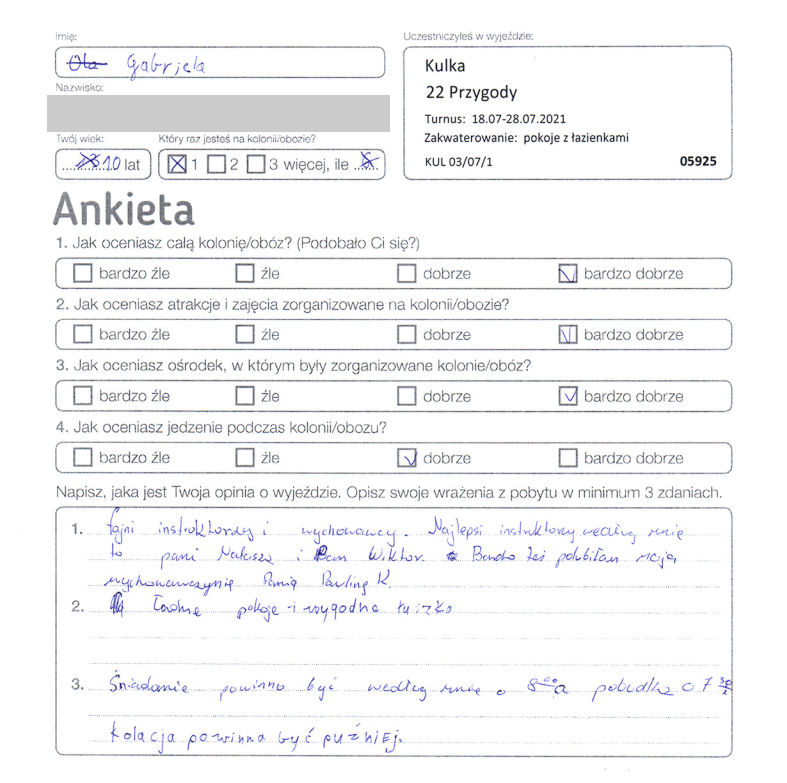 Imię:
Uczestniczyłeś w wyjeździe:
Ola Gabriela
Kulka
22 Przygody
Turnus: 18.07-28.07.2021
Zakwaterowanie: pokoje z łazienkami
KUL 03/07/1 05925
Nazwisko:
Twój wiek:
Który raz jesteś na kolonii/obozie?
10 lat
1 2 3 więcej, ile
Ankieta
1. Jak oceniasz całą kolonię/obóz? (Podobało Ci się?)
bardzo źle źle dobrze bardzo dobrze
2. Jak oceniasz atrakcje i zajęcia zorganizowane na kolonii/obozie?
bardzo źle źle dobrze bardzo dobrze
3. Jak oceniasz ośrodek, w którym były zorganizowane kolonie/obóz?
bardzo źle źle dobrze bardzo dobrze
4. Jak oceniasz jedzenie podczas kolonii/obozu?
bardzo źle źle dobrze bardzo dobrze
Napisz, jaka jest Twoja opinia o wyjeździe. Opisz swoje wrażenia z pobytu w minimum 3 zdaniach.
1. fajni instruktorzy i wychowawcy. Najlepsi instruktorzy według mnie
to pani Natasza i Pan Wiktor. Bardzo też polubiłam moją
wychowawczynię Panią Paulinę K.
2. Ładne pokoje i wygodne łużko
3. Śniadanie powinno być według mnie o 8⁰⁰ a pobudka o 7³⁰
kolacja powinna być puźniej.